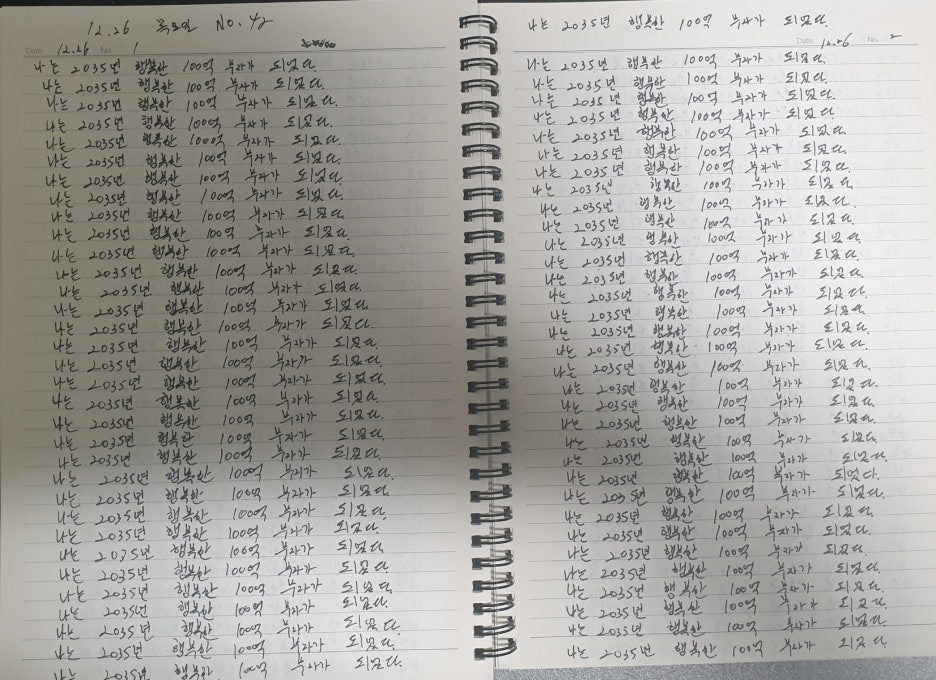 12.26 목요일 No. 42
Date. 12.26 No. 1
나는 2035년 행복한 100억 부자가 되었다.
나는 2035년 행복한 100억 부자가 되었다.
나는 2035년 행복한 100억 부자가 되었다.
나는 2035년 행복한 100억 부자가 되었다.
나는 2035년 행복한 100억 부자가 되었다.
나는 2035년 행복한 100억 부자가 되었다.
나는 2035년 행복한 100억 부자가 되었다.
나는 2035년 행복한 100억 부자가 되었다.
나는 2035년 행복한 100억 부자가 되었다.
나는 2035년 행복한 100억 부자가 되었다.
나는 2035년 행복한 100억 부자가 되었다.
나는 2035년 행복한 100억 부자가 되었다.
나는 2035년 행복한 100억 부자가 되었다.
나는 2035년 행복한 100억 부자가 되었다.
나는 2035년 행복한 100억 부자가 되었다.
나는 2035년 행복한 100억 부자가 되었다.
나는 2035년 행복한 100억 부자가 되었다.
나는 2035년 행복한 100억 부자가 되었다.
나는 2035년 행복한 100억 부자가 되었다.
나는 2035년 행복한 100억 부자가 되었다.
나는 2035년 행복한 100억 부자가 되었다.
나는 2035년 행복한 100억 부자가 되었다.
나는 2035년 행복한 100억 부자가 되었다.
나는 2035년 행복한 100억 부자가 되었다.
나는 2035년 행복한 100억 부자가 되었다.
나는 2035년 행복한 100억 부자가 되었다.
나는 2035년 행복한 100억 부자가 되었다.
나는 2035년 행복한 100억 부자가 되었다.
나는 2035년 행복한 100억 부자가 되었다.
나는 2035년 행복한 100억 부자가 되었다.
나는 2035년 행복한 100억 부자가 되었다.
나는 2035년 행복한 100억 부자가 되었다.
나는 2035년 행복한 100억 부자가 되었다.
나는 2035년 행복한 100억 부자가 되었다.
Date. 12.26 No. 2
나는 2035년 행복한 100억 부자가 되었다.
나는 2035년 행복한 100억 부자가 되었다.
나는 2035년 행복한 100억 부자가 되었다.
나는 2035년 행복한 100억 부자가 되었다.
나는 2035년 행복한 100억 부자가 되었다.
나는 2035년 행복한 100억 부자가 되었다.
나는 2035년 행복한 100억 부자가 되었다.
나는 2035년 행복한 100억 부자가 되었다.
나는 2035년 행복한 100억 부자가 되었다.
나는 2035년 행복한 100억 부자가 되었다.
나는 2035년 행복한 100억 부자가 되었다.
나는 2035년 행복한 100억 부자가 되었다.
나는 2035년 행복한 100억 부자가 되었다.
나는 2035년 행복한 100억 부자가 되었다.
나는 2035년 행복한 100억 부자가 되었다.
나는 2035년 행복한 100억 부자가 되었다.
나는 2035년 행복한 100억 부자가 되었다.
나는 2035년 행복한 100억 부자가 되었다.
나는 2035년 행복한 100억 부자가 되었다.
나는 2035년 행복한 100억 부자가 되었다.
나는 2035년 행복한 100억 부자가 되었다.
나는 2035년 행복한 100억 부자가 되었다.
나는 2035년 행복한 100억 부자가 되었다.
나는 2035년 행복한 100억 부자가 되었다.
나는 2035년 행복한 100억 부자가 되었다.
나는 2035년 행복한 100억 부자가 되었다.
나는 2035년 행복한 100억 부자가 되었다.
나는 2035년 행복한 100억 부자가 되었다.
나는 2035년 행복한 100억 부자가 되었다.
나는 2035년 행복한 100억 부자가 되었다.
나는 2035년 행복한 100억 부자가 되었다.
나는 2035년 행복한 100억 부자가 되었다.
나는 2035년 행복한 100억 부자가 되었다.